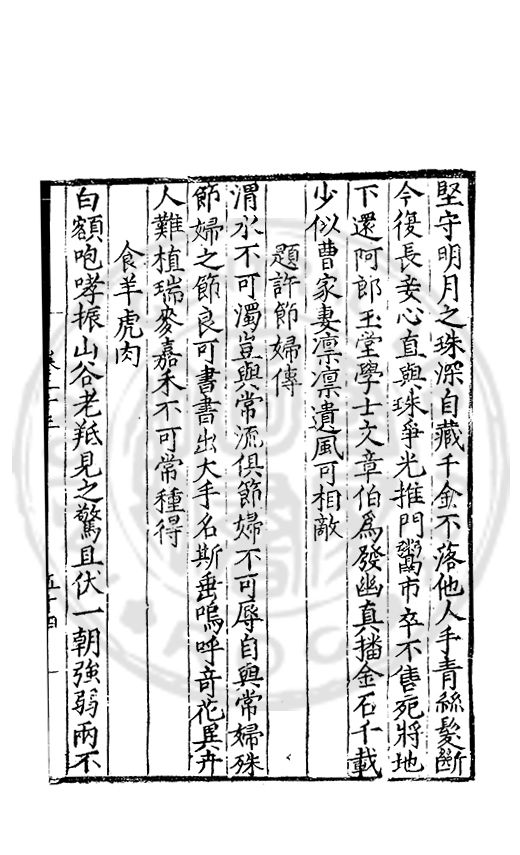 堅守明月之珠深自藏千金不落他人手青絲髮斷
今復長妾心直與珠爭光推門鬻市卒不售宛將地
下還阿郎玉堂學士文章伯為發幽真播金石千載
少似曹家妻凛凛遺風可相敵
題許節婦傳
渭水不可濁豈與常流俱節婦不可辱自與常婦殊
節婦之節良可書書出大手名斯垂嗚呼竒花異卉
人難植瑞麥嘉禾不可常種得
食羊虎肉
白額咆哮振山谷老羝見之驚且伏一朝強弱兩不
五十四